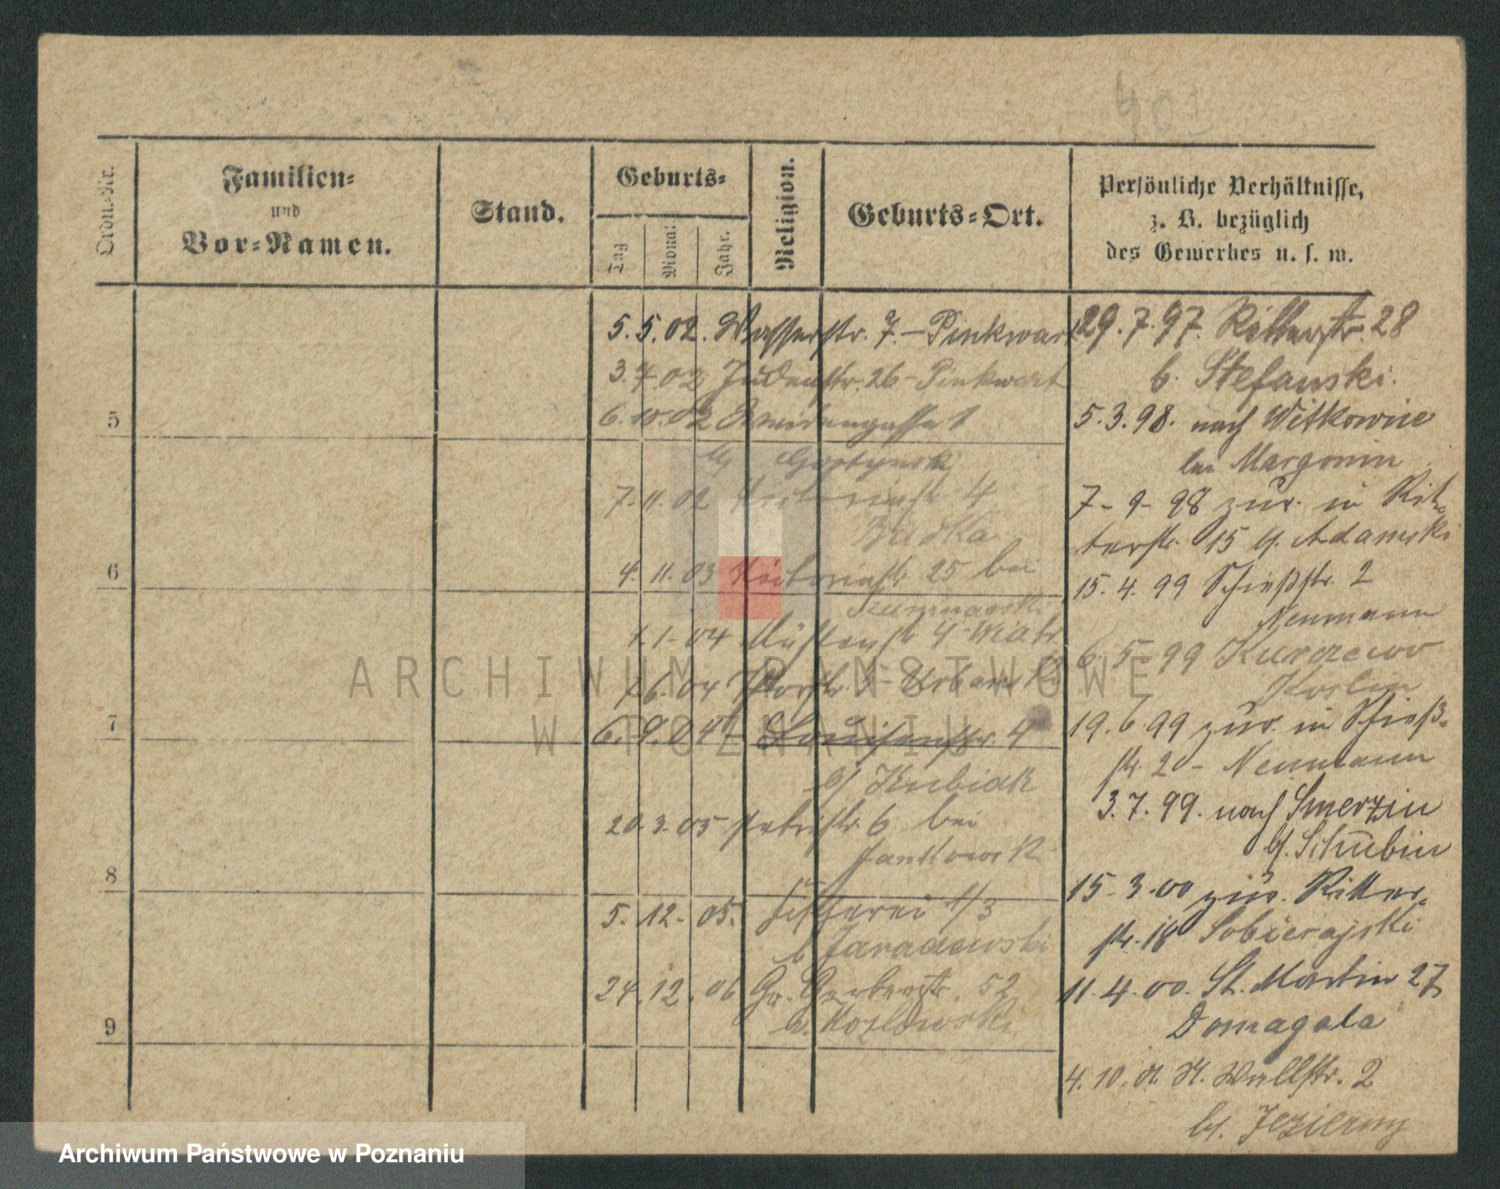 Ordn.-Nr.
Familien=
und
Vor=Namen.
Stand.
Geburts=
Tag
Monat
Jahr.
Religion.
Geburts=Ort.
Persönliche Verhältnisse,
z. B. bezüglich
des Gewerbes u. s. w.
5
6
7
8
9
5. 5. 02. Wasserstr. 7. – Pinkwart
3. 7 02 Judenstr. 26 – Pinkwart
6. 10. 02 1
7. 11. 02 4
Budka
4. 11. 03 Victoriastr 25 bei
1. 1. 04 4 Wiatr
04 Urbans
6. 9. 04 Louisenstr. 4
b/ Kubiak
20. 3. 05 Petristr. 6 bei
Jankowsk
5. 12. 05. 1/3
b Jaraczewski
24. 12. 06 Gr. Gerberstr. 52
b. Kozlowski
29. 7. 97. Ritterstr. 28
b. Stefanski.
5. 3. 98. nach Witkowice
bei Margonin
7 - 9 - 98 zur. in Rit-
terstr. 15 b/ Adamski
15. 4. 99 Schießstr. 2
Neumann
6. 5. 99 Kurzewo
19. 6. 99 zur. in Schieß-
str 2 – Neumann
3. 7. 99. nach Smerzin
b/. Schubin
15. 3. 00 zur. Ritter-
str. 18 Sobierajski
11. 4. 00. St. Martin 27
Domagala
4. 10. 01. Wallstr. 2
b/. Jezierny
ARCHIWUM PAŃSTWOWE
W POZNANIU
Archiwum Państwowe w Poznaniu